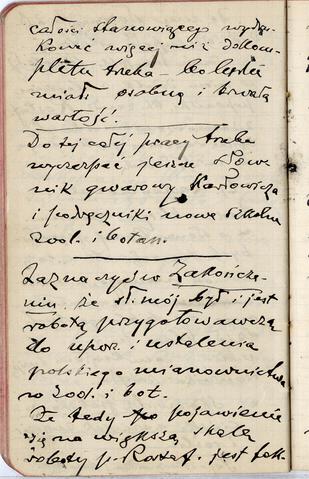 całości stanowiącego wyda-
kować więcej niż do kom-
pletu treba - bo będzie
miała osobną i trwałą
wartość.
Do tej całej pracy treba
wyczerpać jeszcze Słow
nik gwarowy Karłowicza
i podręczniki nowe szkolne
zool. i botan.
Zaznaczyć w Zakończe-
niu, że sł. mój był i jest
robotą przygotowawczą
do upor. i ustalenia
polskiego mianownictwa
w zool. i bot.
Że tedy po pojawieniu
się na większą skalę
roboty p. Rostaf. jest tak